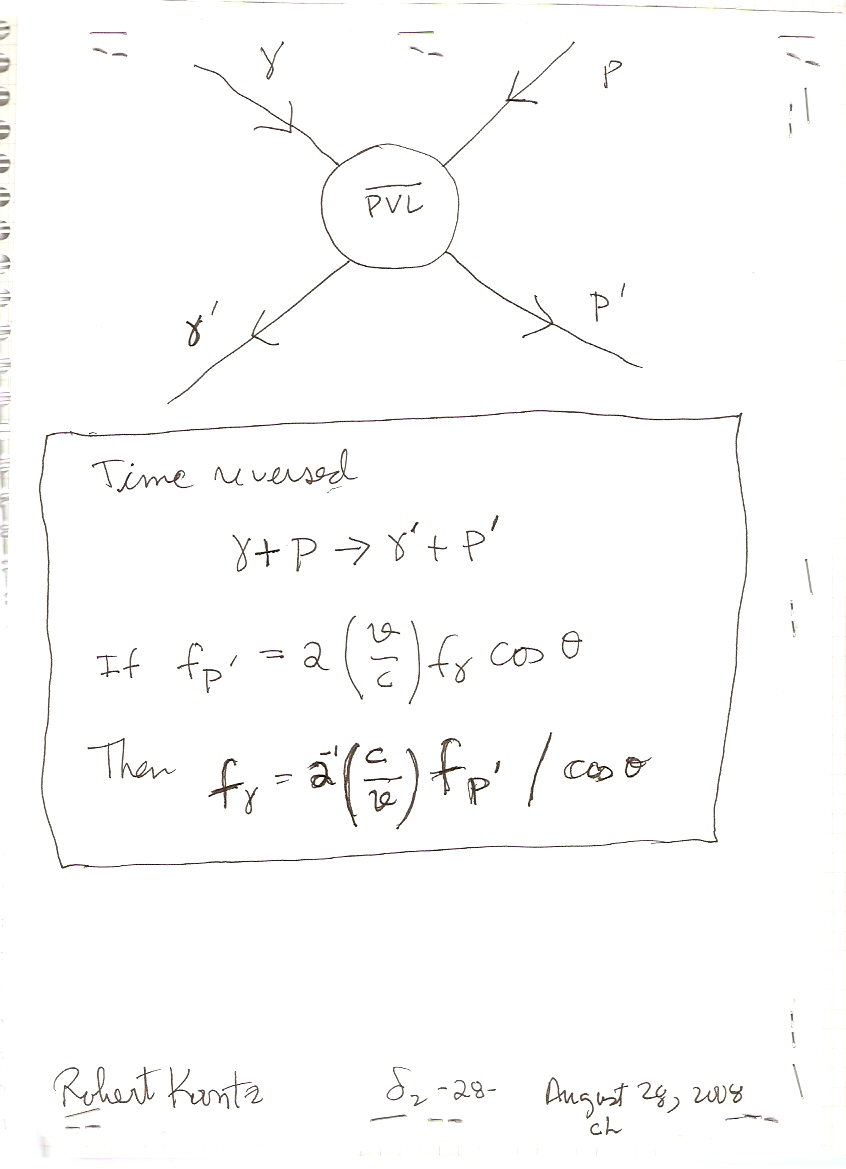 γ P
PVL
γ' P'
Time reversed
γ + P → γ' + P'
If f_P' = 2 (v/c) f_γ cos θ
Then f_γ = 2⁻¹ (c/v) f_P' / cos θ
Robert Kuntz δ₂ -28- August 28, 2008
ch